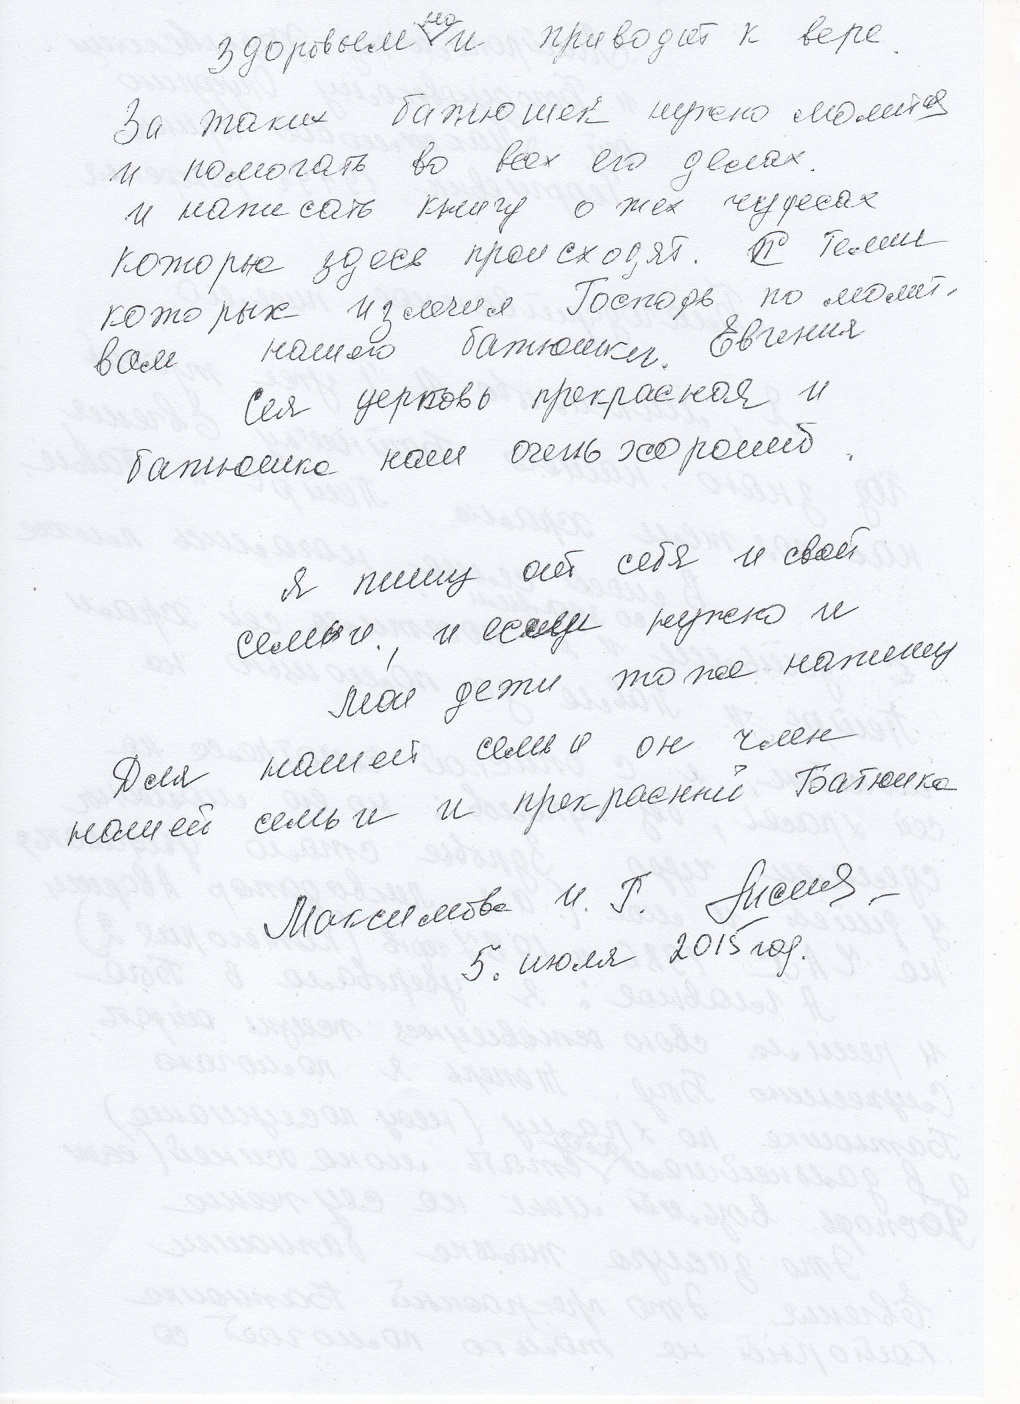 здоровьем но и приводит к вере.
За таких батюшек нужно молится
и помогать во всех его делах.
и написать книгу о тех чудесах
которые здесь происходят. С теми
которых излечил Господь по молит-
вам нашего батюшки. Евгения
Сия церковь прекрасная и
батюшка наш очень хороший.
Я пишу от себя и своей
семьи, и если нужно и
мои дети тоже напишу
Для нашей семьи он член
нашей семьи и прекрасний Батюшка
Максимова И. Г.
5. июля 2015 год.